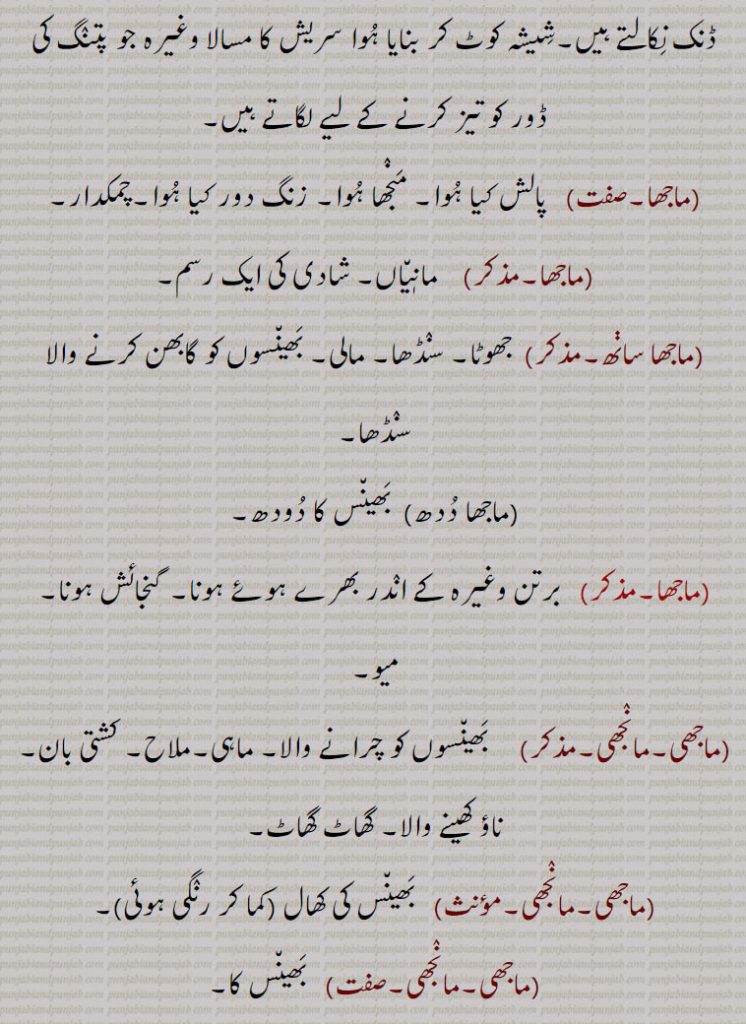 ڈنک نِکالتے ہیں۔شِیشہ کوٹ کر بنایا ہُوا سریش کا مسالا وغیرہ جو پتن٘گ کی
ڈور کو تیز کرنے کے لیے لگاتے ہیں۔
(ماجھا۔صفت) پالش کیا ہُوا۔ مَن٘جھا ہُوا۔ زنگ دور کیا ہُوا۔چمکدار۔
(ماجھا۔مذکر) مانیّاں۔ شادی کی ایک رسم۔
(ماجھا سان٘ھ۔مذکر) جھوٹا۔ سن٘ڈھا۔ مالی۔ بَھین٘سوں کو گابھن کرنے والا
سن٘ڈھا۔
(ماجھا دُدھ) بَھین٘س کا دُودھ۔
(ماجھا۔مذکر) برتن وغیرہ کے ان٘در بھرے ہوئے ہونا۔ گنجائش ہونا۔
میو۔
(ماجھی۔مان٘جھی۔مذکر) بَھین٘سوں کو چرانے والا۔ ماہی۔ملاح۔ کشتی بان۔
ناؤ کھینے والا۔ گھاٹ گھاٹ۔
(ماجھی۔مان٘جھی۔مؤنث) بَھین٘س کی کھال (کما کر رن٘گی ہوئی)۔
(ماجھی۔مان٘جھی۔صفت) بَھین٘س کا۔